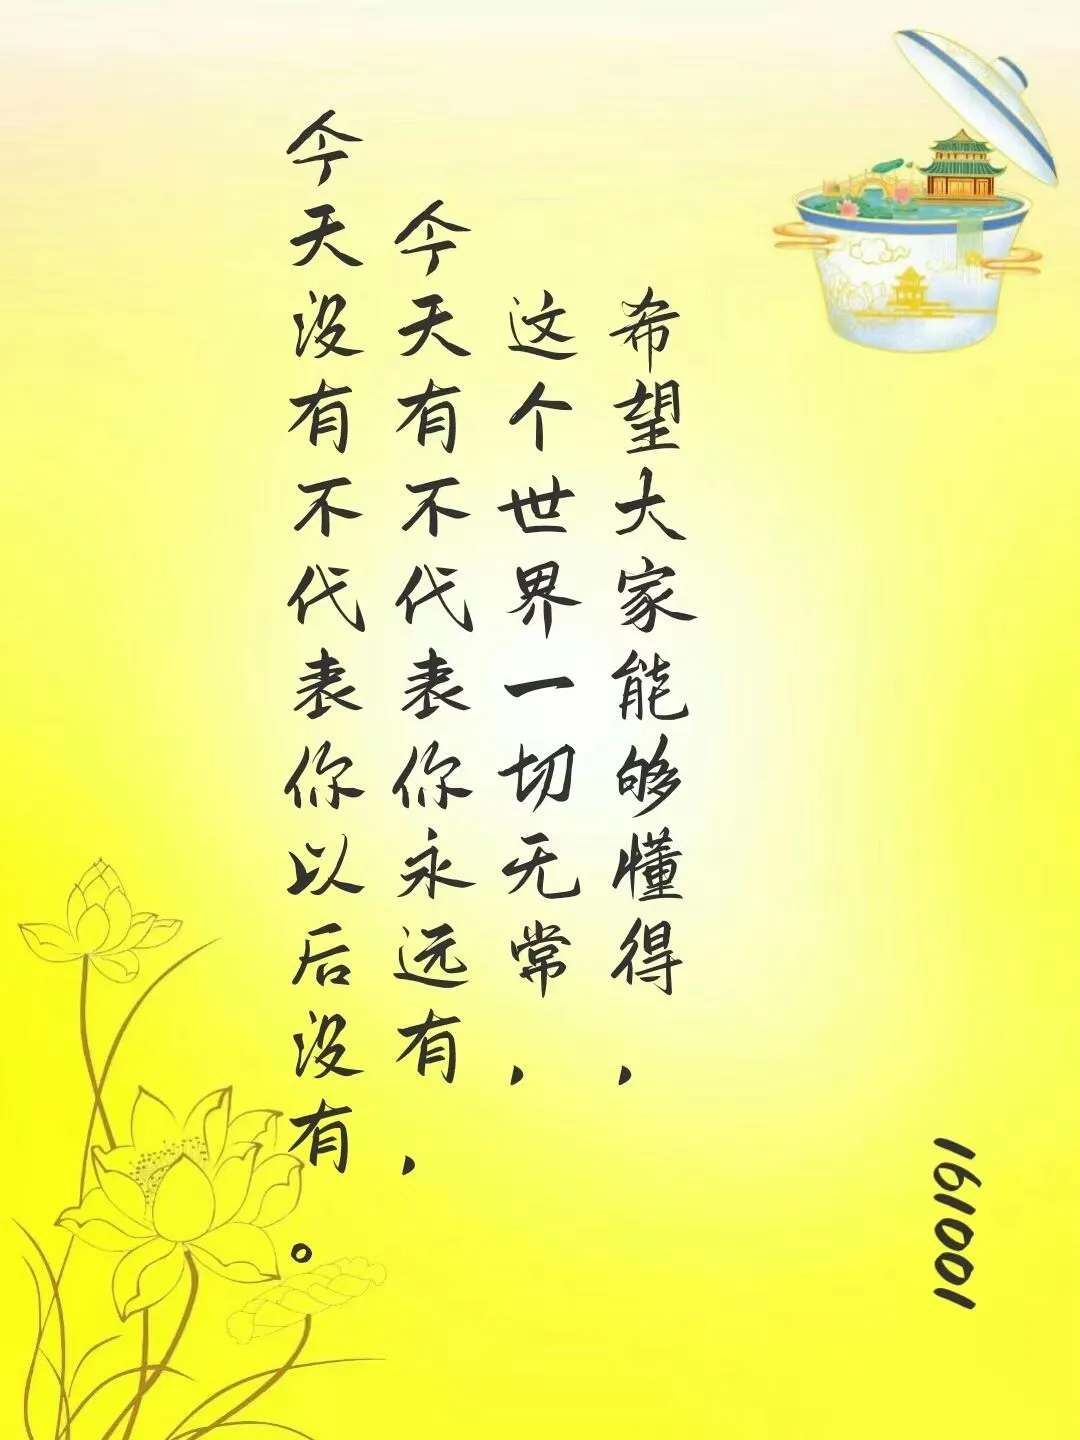 希望大家能够懂得，
这个世界一切无常，
今天有不代表你永远有，
今天没有不代表你以后没有。
161001